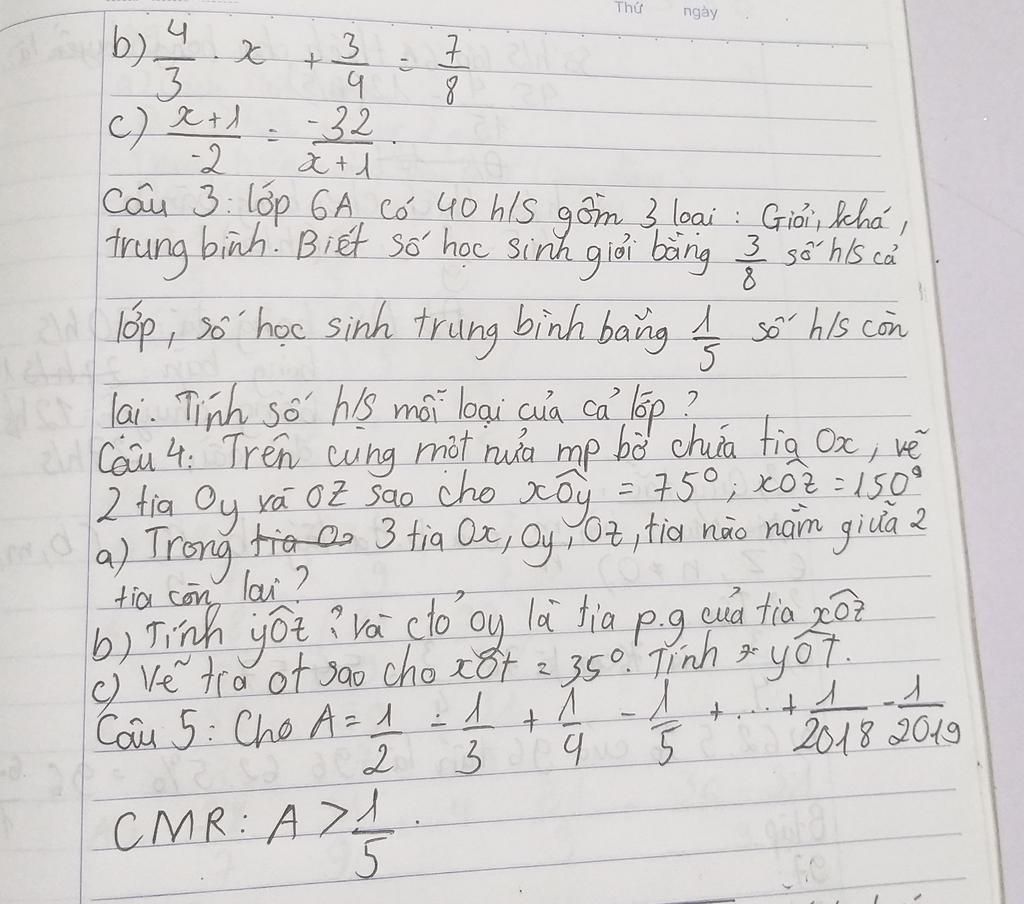 Thứ ngày
b) 4/3 . x + 3/4 = 7/8
c) x+1/-2 = -32/x+1
Câu 3: lớp 6A có 40 h/s gồm 3 loại: Giỏi, khá,
trung bình. Biết số học sinh giỏi bằng 3/8 số h/s cả
lớp, số học sinh trung bình bằng 1/5 số h/s còn
lại. Tính số h/s mỗi loại của cả lớp?
Câu 4: Trên cùng một nửa mp bờ chứa tia Ox, vẽ
2 tia Oy và OZ sao cho xÔy = 75°; xÔz = 150°
a) Trong tia Oz 3 tia Ox, Oy, Oz, tia nào nằm giữa 2
tia còn lại?
b) Tính yÔz? và ctỏ oy là tia p.g của tia xÔz
c) vẽ tia ot sao cho xÔt = 35°. Tính yÔt.
Câu 5: Cho A = 1/2 - 1/3 + 1/4 - 1/5 + ... + 1/2018 - 1/2019
CMR: A > 1/5.